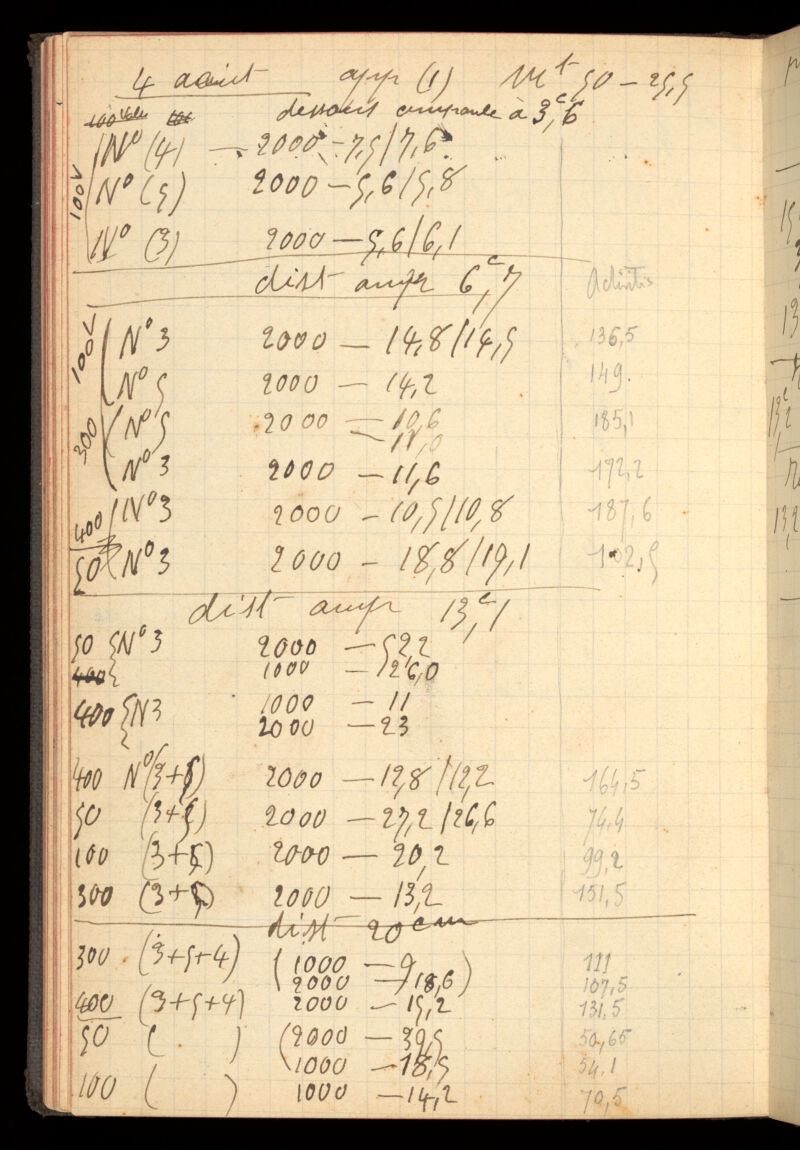 4 août app (1) M^t 50 – 25,5
dessous ampoule à 3^c,6
100V
N° (4) – 2000 – 7,5/7,6
N° (5) 2000 – 5,6/5,8
N° (3) 2000 – 5,6/6,1
dist amp 6^c,7 Activités
100V N° 3 2000 – 14,8/14,5 136,5
N° 5 2000 – 14,2 149.
300 N° 5 2000 – 10,6 185,1
– 11,0
N° 3 2000 – 11,6 172,2
400 N° 3 2000 – 10,5/10,8 187,6
50 N° 3 2000 – 18,8/19,1 102,5
dist amp 13^c,1
50 N° 3 2000 – 52,2
400 1000 – 26,0
400 N3 1000 – 11
2000 – 23
400 N° (3+5) 2000 – 12,8/12,2 164,5
50 (3+5) 2000 – 27,2/26,6 74,4
100 (3+5) 2000 – 20,2 99,2
300 (3+5) 2000 – 13,2 151,5
dist 20 cm
300 (3+5+4) (1000 – 9 111
2000 – 18,6) 107,5
400 (3+5+4) 2000 – 15,2 131,5
50 ( ) (2000 – 39,5 50,65
1000 – 18,5 54,1
100 ( ) 1000 – 14,2 70,5